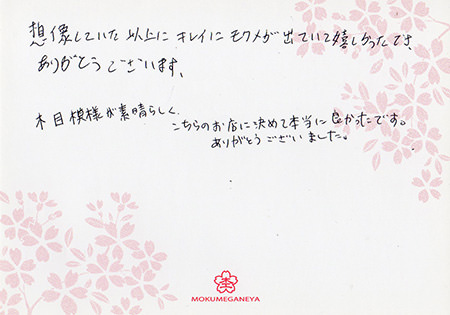 想像していた以上に キレイに モクメが出ていて嬉しかったです。
ありがとうございます。
木目模様が素晴らしく、
こちらのお店に決めて本当に良かったです。
ありがとうございました。
MOKUMEGANEYA